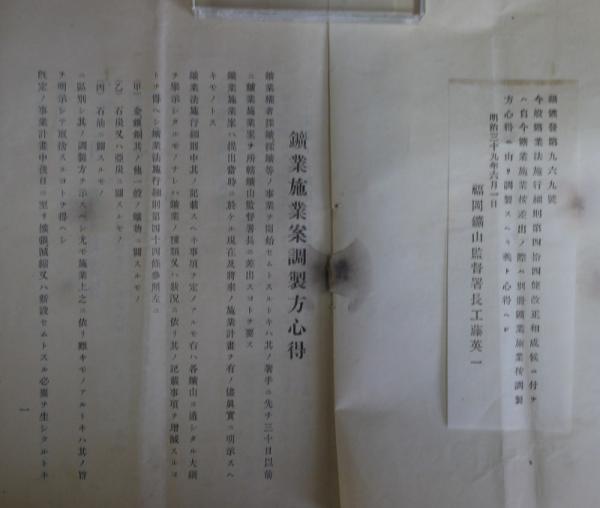 鑛監發第九六九號
今般鑛業法施行細則第四拾四條改正相成候ニ付テ
ハ自今鑛業施業按差出ノ際ハ別冊鑛業施業按調製
方心得ニ由リ調製スヘキ義ト心得ヘシ
明治三十九年六月一日
福岡鑛山監督署長工藤英一
鑛業施業案調製方心得
鑛業權者採鑛採礦等ノ事業ヲ開始セムトスルトキハ其ノ著手ニ先チ三十日以前
ニ鑛業施業案ヲ所轄鑛山監督署長ニ差出スコトヲ要ス
鑛業施業案ハ提出當時ニ於ケル現在及將來ノ施業計畫ヲ有ノ儘眞實ニ明示スヘ
キモノトス
鑛業法施行細則中其ノ記載スヘキ事項ヲ定ノアルモ右ハ各鑛山ニ通シタル大綱
ヲ擧示シタルモノナレハ鑛業ノ種類又ハ狀況ニ依リ其ノ記載事項ヲ增減スルコ
トヲ得ヘシ鑛業法施行細則第四十四條參照左ニ
(甲) 金銀銅其ノ他一般ノ鑛物ニ關スルモノ
(乙) 石炭又ハ亞炭ニ關スルモノ
(丙) 石油ニ關スルモノ
ニ區別シ其ノ調製方ヲ示スヘシ尤モ施業上之ニ依リ難キモノアルトキハ其ノ旨
ヲ明示シテ取捨スルコトヲ得ヘシ
旣定ノ事業計畫中後日ニ至リ擴張減縮又ハ新設セムトスル必要ヲ生シタルトキ
一